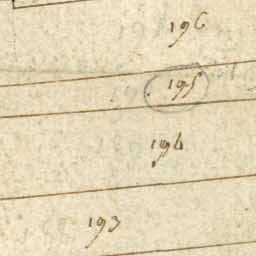 196
195
194
193